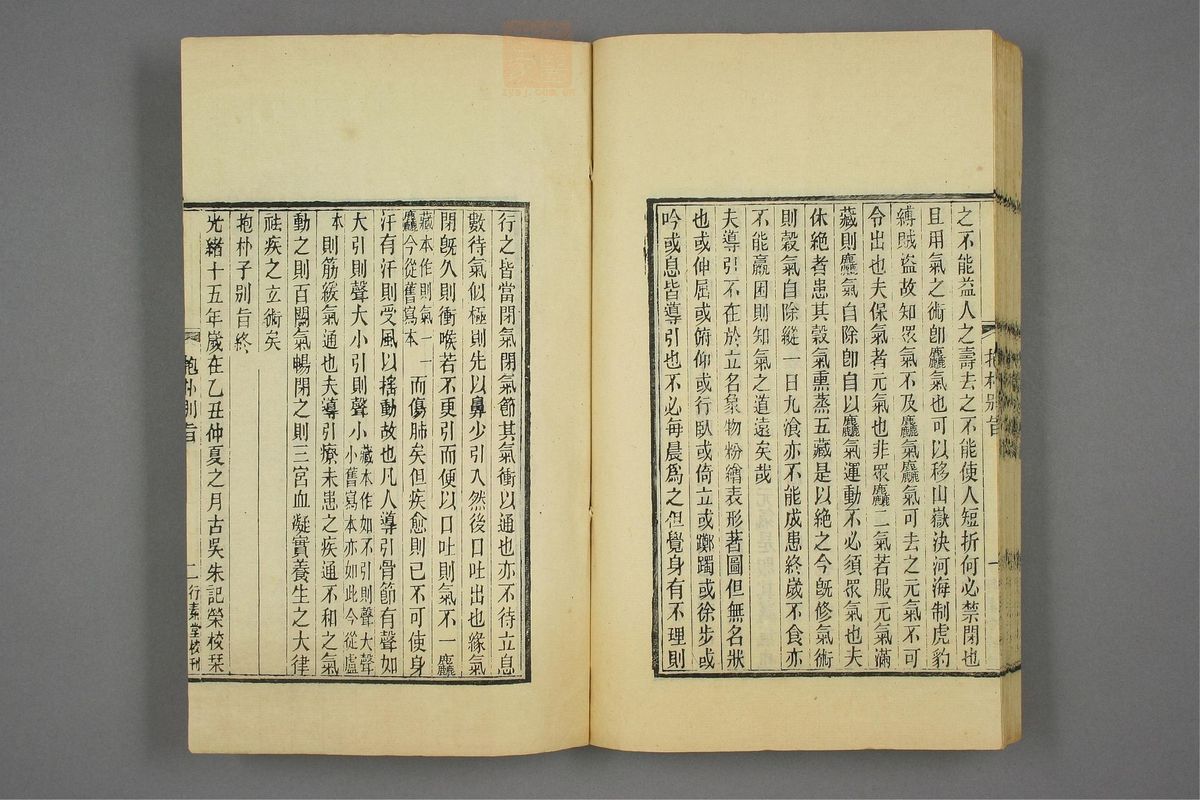 之不能益人之壽去之不能使人短折何必禁閉也
且用氣之術卽麤氣也可以移山嶽決河海制虎豹
縛賊盜故知眾氣不及麤氣麤氣可去之元氣不可
令出也夫保氣者元氣也非眾麤二氣若服元氣滿
藏則麤氣自除卽自以麤氣運動不必須眾氣也夫
休絶者患其穀氣熏蒸五藏是以絶之今旣修氣術
則穀氣自除縱一日九飡亦不能成患終歲不食亦
不能羸困則知氣之道遠矣哉
夫導引不在於立名象物粉繪表形著圖但無名狀
也或伸屈或俯仰或行臥或倚立或躑躅或徐步或
吟或息皆導引也不必每晨爲之但覺身有不理則
抱朴別旨
一
行之皆當閉氣閉氣節其氣衝以通也亦不待立息
數待氣似極則先以鼻少引入然後口吐出也緣氣
閉旣久則衝喉若不更引而便以口吐則氣不一麤
藏本作則氣一一麤今從舊寫本而傷肺矣但疾愈則已不可使身
汗有汗則受風以搖動故也凡人導引骨節有聲如
大引則聲大小引則聲小藏本作如不引則聲大聲小舊寫本亦如此今從盧
本則筋緩氣通也夫導引療未患之疾通不和之氣
動之則百關氣暢閉之則三宮血凝實養生之大律
祛疾之立術矣
抱朴子別旨終
光緒十五年歲在乙丑仲夏之月古吳朱記榮校栞
抱朴別旨
二
行素堂校刊